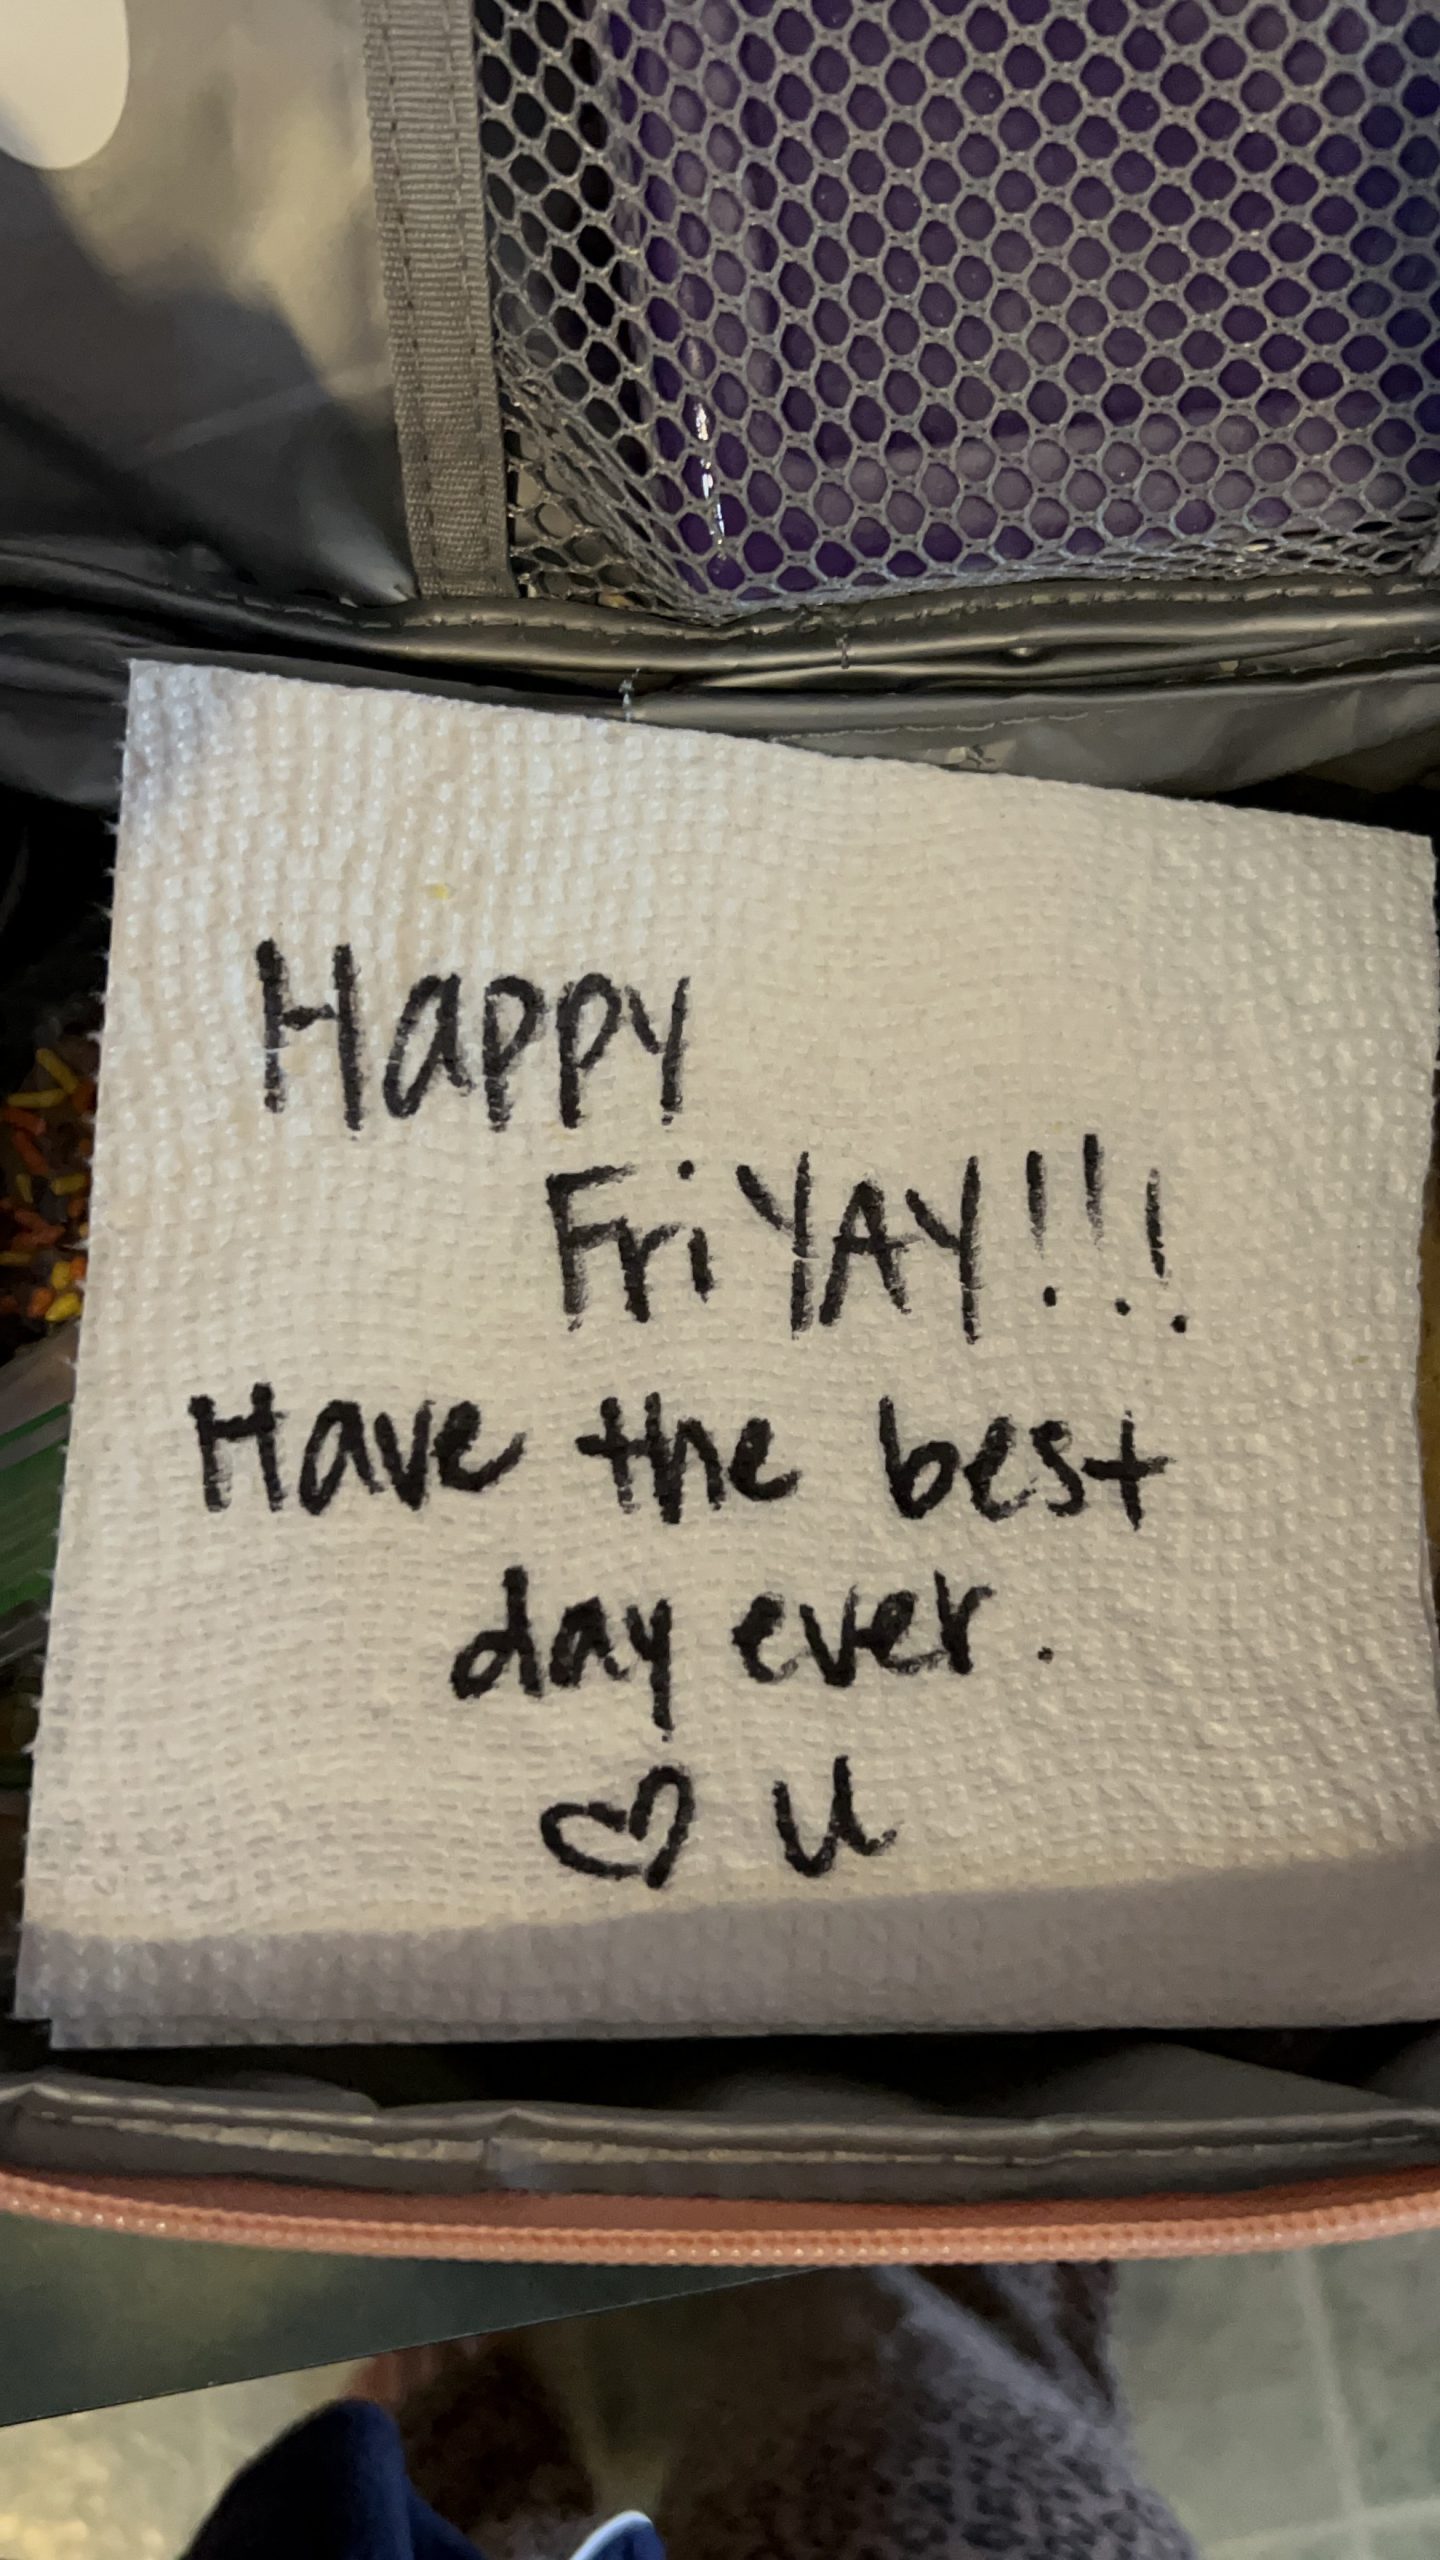 Happy
FriYAY!!!
Have the best
day ever.
♡ u